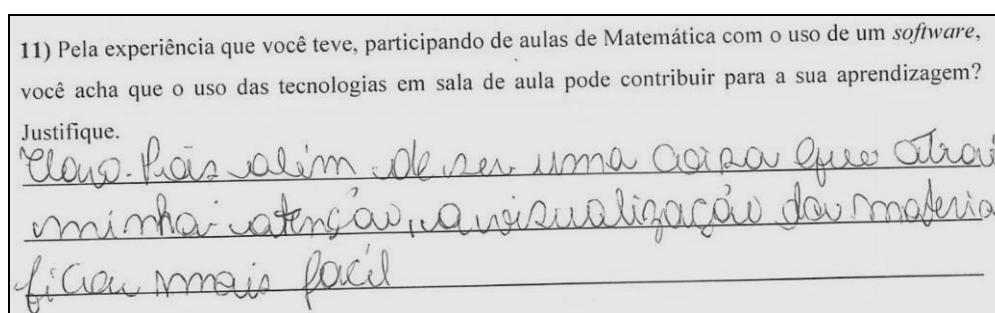 11) Pela experiência que você teve, participando de aulas de Matemática com o uso de um software,
você acha que o uso das tecnologias em sala de aula pode contribuir para a sua aprendizagem?
Justifique.
Claro. Pois além de ser uma coisa que atrai
minha atenção, a visualização da materia
ficou mais facil